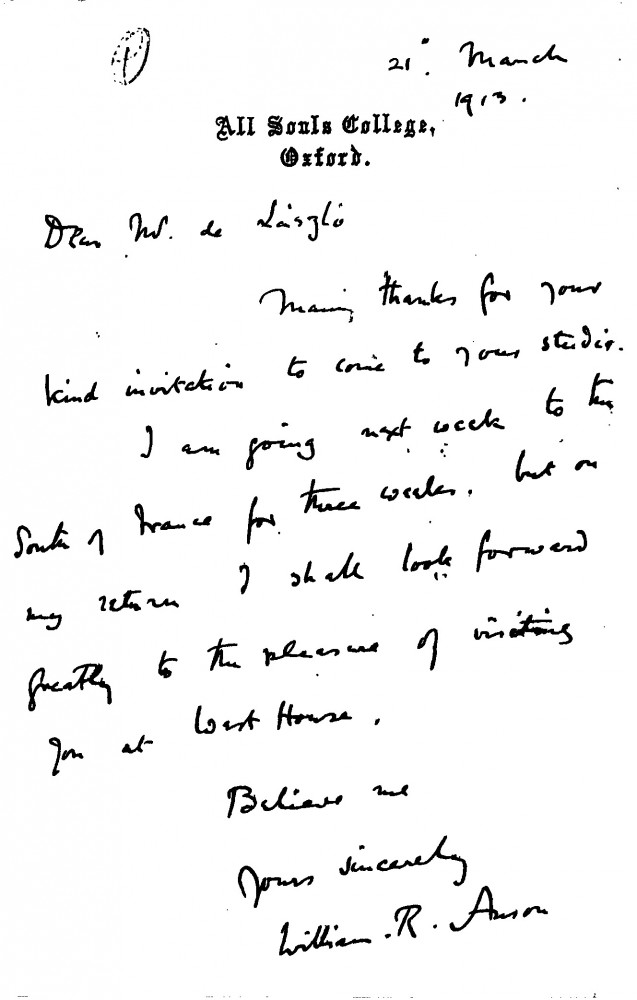 21st March
1913.
All Souls College,
Oxford.
Dear Mr. de László
Many thanks for your
kind invitation to come to your studio.
I am going next week to the
South of France for three weeks. but on
my return I shall look forward
greatly to the pleasure of visiting
you at West House.
Believe me
Yours sincerely
William. R. Anson